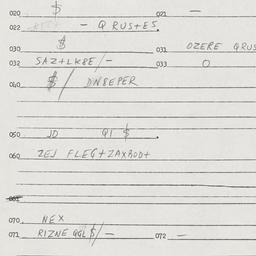 020 $ 021 —
022 — Q RUS+ES
030 $ 031 OZERE QRUS
032 SAZ+LK8E/— 033 O
040 $/ DN8EPER
050 JD QI $
060 ZEJ FLEG+ZAXROD+
070 NEX
071 RIZNE QGL$/— 072 —